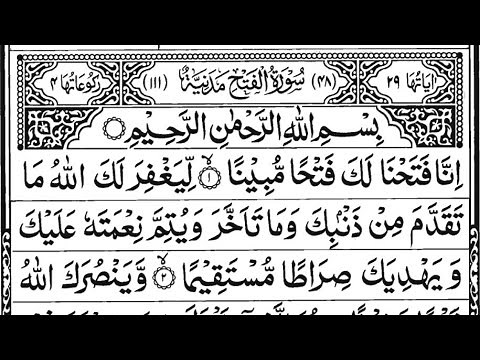 اٰيَاتُهَا ٢٩ (٤٨) سُوْرَةُ الْفَتْحِ مَدَنِيَّةٌ (١١١) رُكُوْعَاتُهَا ٤
بِسْمِ اللّٰهِ الرَّحْمٰنِ الرَّحِيْمِ
اِنَّا فَتَحْنَا لَكَ فَتْحًا مُّبِيْنًا ۙ﴿۱﴾ لِّيَغْفِرَ لَكَ اللّٰهُ مَا
تَقَدَّمَ مِنْ ذَنْۢبِكَ وَمَا تَاَخَّرَ وَيُتِمَّ نِعْمَتَهٗ عَلَيْكَ
وَيَهْدِيَكَ صِرَاطًا مُّسْتَقِيْمًا ۙ﴿۲﴾ وَّيَنْصُرَكَ اللّٰهُ